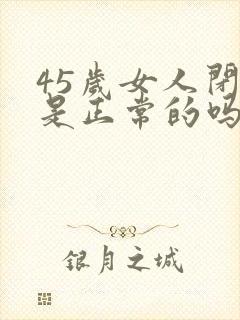 45歲女人閉
是正常的吗
银月之城